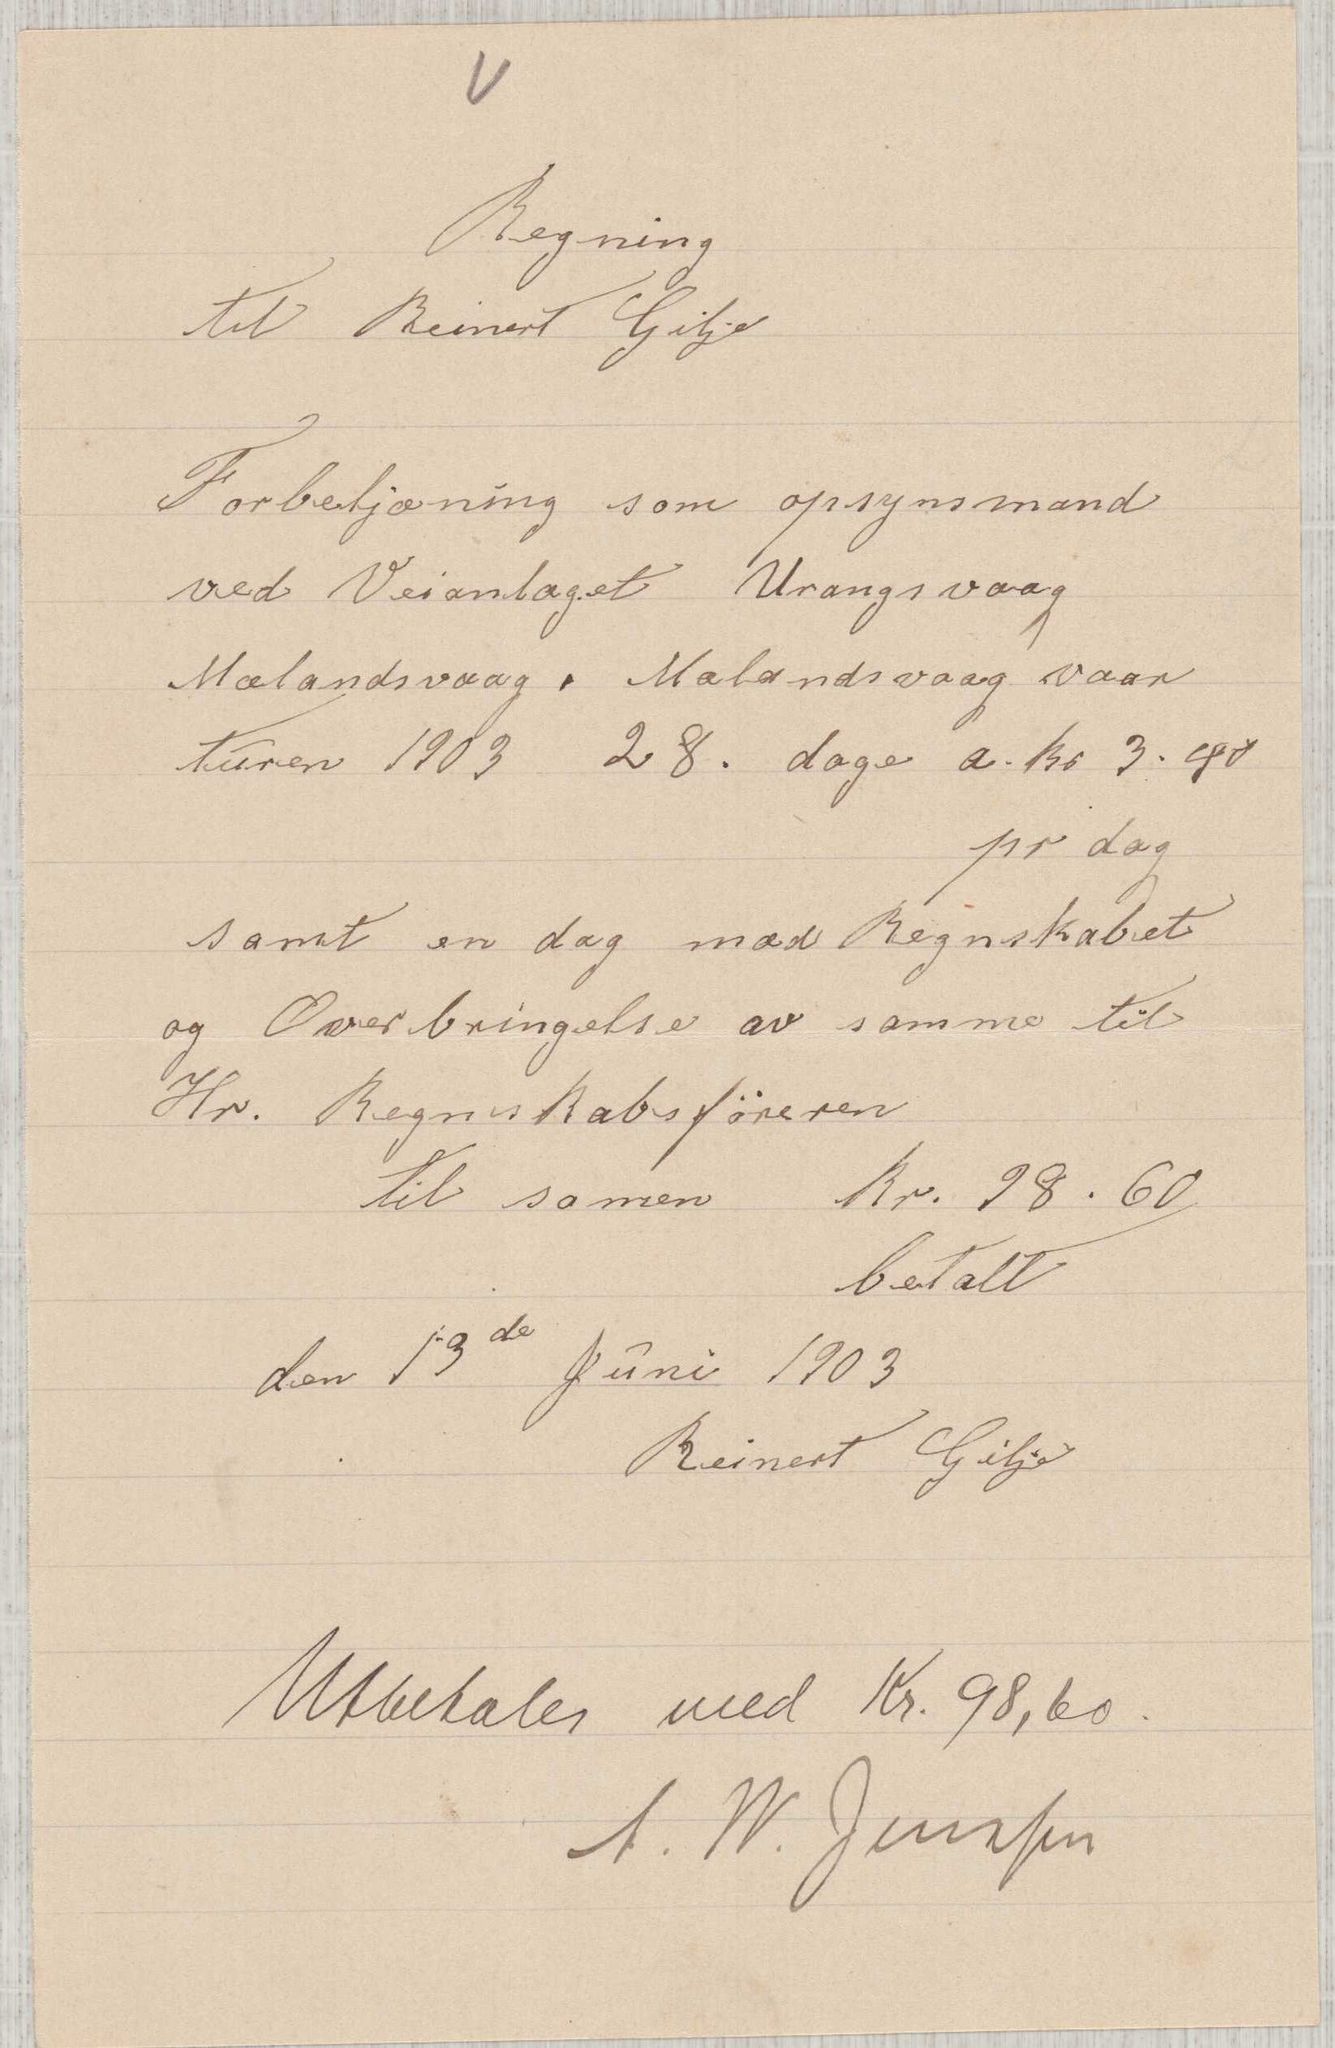 V
Regning
til Reinert Gilje
Forbetjæning som opsynsmand
ved Veianlaget Urangsvaag
Mælandsvaag. Mælandsvaag vaar
turen 1903 28. dage a. kr 3.40
pr dag
samt en dag mæd Regnskabet
og Overbringelse av samme til
Hr. Regnskabsföreren
til samen Kr. 98.60
betalt
den 13de Juni 1903
Reinert Gilje
Utbetales med Kr. 98,60.
A. W. Jenssen